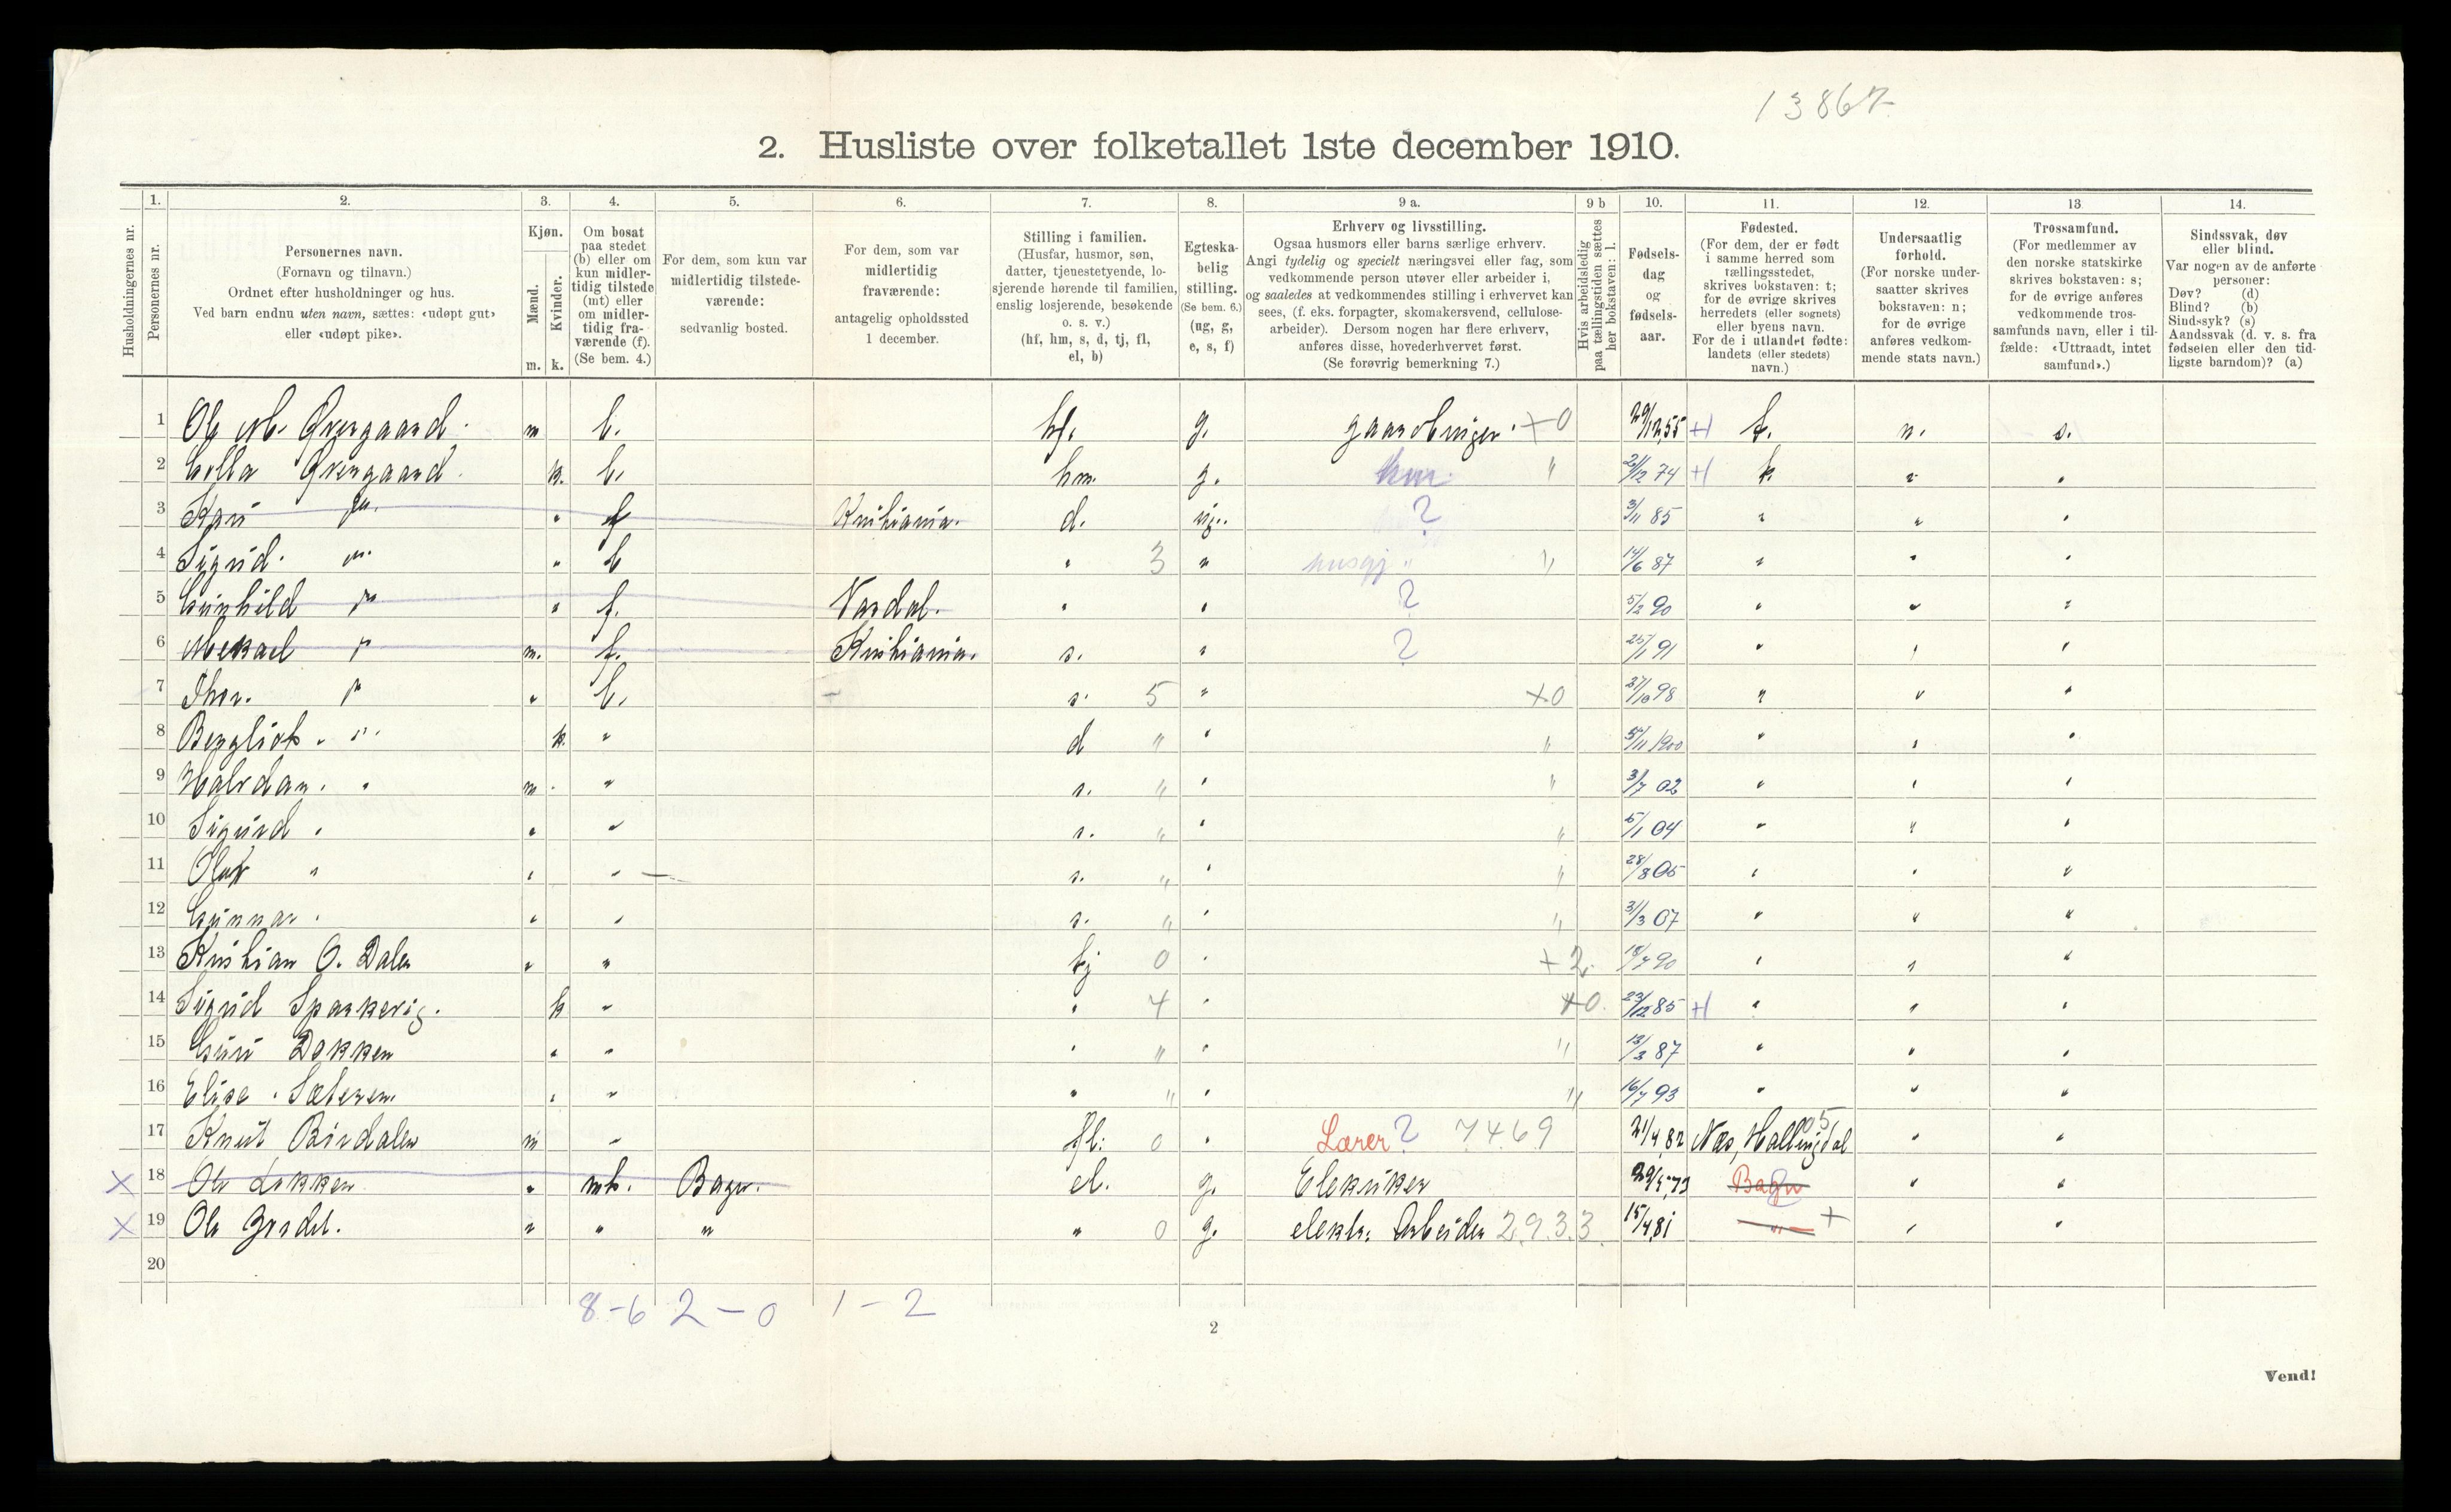 13867
2. Husliste over folketallet 1ste december 1910.
Husholdningernes nr.
1. Personernes nr.
2. Personernes navn.
(Fornavn og tilnavn.)
Ordnet efter husholdninger og hus.
Ved barn endnu uten navn, sættes: «udøpt gut»
eller «udøpt pike».
3. Kjøn.
Mænd. m.
Kvinder. k.
4. Om bosat
paa stedet
(b) eller om
kun midler-
tidig tilstede
(mt) eller
om midler-
tidig fra-
værende (f).
(Se bem. 4.)
5. For dem, som kun var
midlertidig tilstede-
værende:
sedvanlig bosted.
6. For dem, som var
midlertidig
fraværende:
antagelig opholdssted
1 december.
7. Stilling i familien.
(Husfar, husmor, søn,
datter, tjenestetyende, lo-
sjerende hørende til familien,
enslig losjerende, besøkende
o. s. v.)
(hf, hm, s, d, tj, fl,
el, b)
8. Egteska-
belig
stilling.
(Se bem. 6.)
(ug, g,
e, s, f)
9 a. Erhverv og livsstilling.
Ogsaa husmors eller barns særlige erhverv.
Angi tydelig og specielt næringsvei eller fag, som
vedkommende person utøver eller arbeider i,
og saaledes at vedkommendes stilling i erhvervet kan
sees, (f. eks. forpagter, skomakersvend, cellulose-
arbeider). Dersom nogen har flere erhverv,
anføres disse, hovederhvervet først.
(Se forøvrig bemerkning 7.)
9 b Hvis arbeidsledig
paa tællingstiden sættes
her bokstaven: l.
10. Fødsels-
dag
og
fødsels-
aar.
11. Fødested.
(For dem, der er født
i samme herred som
tællingsstedet,
skrives bokstaven: t;
for de øvrige skrives
herredets (eller sognets)
eller byens navn.
For de i utlandet fødte:
landets (eller stedets)
navn.)
12. Undersaatlig
forhold.
(For norske under-
saatter skrives
bokstaven: n;
for de øvrige
anføres vedkom-
mende stats navn.)
13. Trossamfund.
(For medlemmer av
den norske statskirke
skrives bokstaven: s;
for de øvrige anføres
vedkommende tros-
samfunds navn, eller i til-
fælde: «Uttraadt, intet
samfund».)
14. Sindssvak, døv
eller blind.
Var nogen av de anførte
personer:
Døv? (d)
Blind? (b)
Sindssyk? (s)
Aandssvak (d. v. s. fra
fødselen eller den tid-
ligste barndom)? (a)
1 Ole M. Øvergaard. m b. hf. g. gaardbruger. +0 29/12 55 +1 t. n. s.
2 Øvergaard. k. b. hm. g. hm " 12 74 +1 t. " "
3 Kari " " f Kristiania. d. ug. ? 3/11 85 " " "
4 Sigrid. " " b " 3 " husgj " " 14/6 87 " " "
5 Gunhild " " f. Vardal. " " ? 5/2 90 " " "
6 Mekael " m. f. Kristiania. s. " ? 25/1 91 " " "
7 Thor. " " b. s. 5 " +0 27/10 98 " " "
8 Bergliot. " k. " d " " " 5/11 1900 " " "
9 Halvdan. " m. " s. " " " 3/7 02 " " "
10 Sigurd " " " s. " " " 5/1 04 " " "
11 Olaf " " " s. " " " 28/8 05 " " "
12 Gunnar " " " s. " " " 31/3 07 " " "
13 Kristian O. Dalen " " tj 0 " +2 18/7 90 " " "
14 Sigrid k " " 4 " +0. 23/12 85 +1 " " "
15 Guri Dokken " " " " " " 13/3 87 " " "
16 Elise Sæteren. " " " " " " 16/7 93 " " "
17 Knut m " fl: 0 " Lærer ? 7469 21/4 82 Næs, Hallingdal 05 " "
X 18 Ole Løkken " mt. Bagn. el. g. Elektriker 29/5 79 Bagn " "
X 19 Ole Grndal. " " " " 0 g. elektr. Arbeider 2933 15/4 81 " + " "
20
8-6 2-0 1-2
2
Vend!